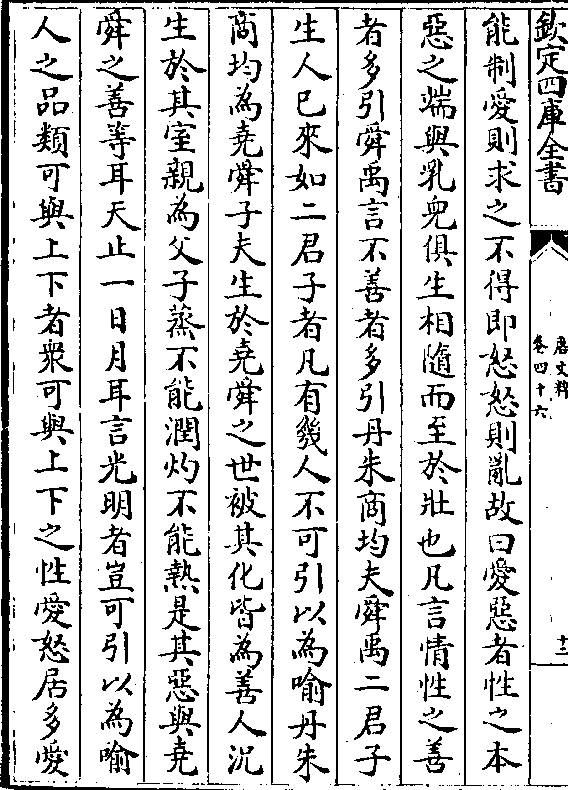 欽定四庫全書
唐文粹
卷四十六
十三
能制愛則求之不得即怒怒則亂故曰愛惡者性之本
惡之端與乳兒俱生相隨而至於壯也凡言情性之善
者多引舜禹言不善者多引丹朱商均夫舜禹二君子
生人已來如二君子者凡有幾人不可引以為喻丹朱
商均為堯舜子夫生於堯舜之世被其化皆為善人況
生於其室親為父子蒸不能潤灼不能熱是其惡與堯
舜之善等耳天止一日月耳言光明者豈可引以為喻
人之品類可與上下者衆可與上下之性愛怒居多愛